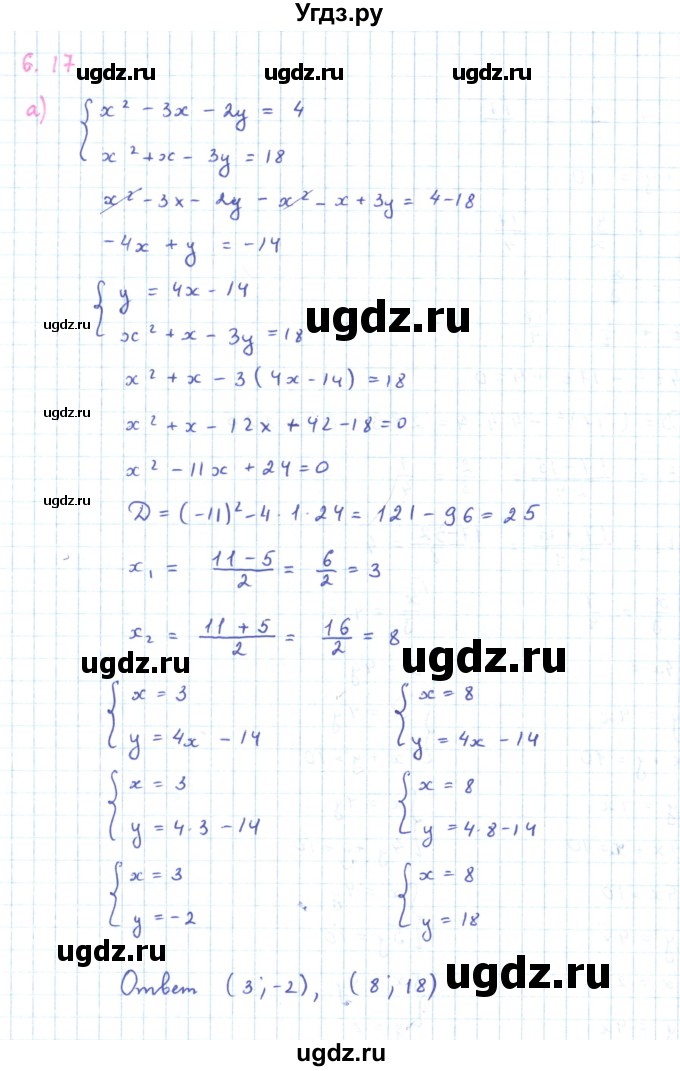 Угдз.ру
6. 17
ugdz.ru ugdz.ru ugdz.ru
а) { x² - 3x - 2y = 4
x² + x - 3y = 18
x² - 3x - 2y - x² - x + 3y = 4 - 18
-4x + y = -14
{ y = 4x - 14
ugdz.ru ugdz.ru
x² + x - 3y = 18
x² + x - 3(4x - 14) = 18
ugdz.ru
x² + x - 12x + 42 - 18 = 0
x² - 11x + 24 = 0
ugdz.ru
D = (-11)² - 4 · 1 · 24 = 121 - 96 = 25
x₁ = (11 - 5)/2 = 6/2 = 3
x₂ = (11 + 5)/2 = 16/2 = 8
ugdz.ru ugdz.ru
{ x = 3 { x = 8
y = 4x - 14 y = 4x - 14
{ x = 3 { x = 8
y = 4·3 - 14 y = 4·8 - 14
{ x = 3 { x = 8
y = -2 y = 18
ugdz.ru ugdz.ru
Ответ (3; -2), (8; 18)
ugdz.ru